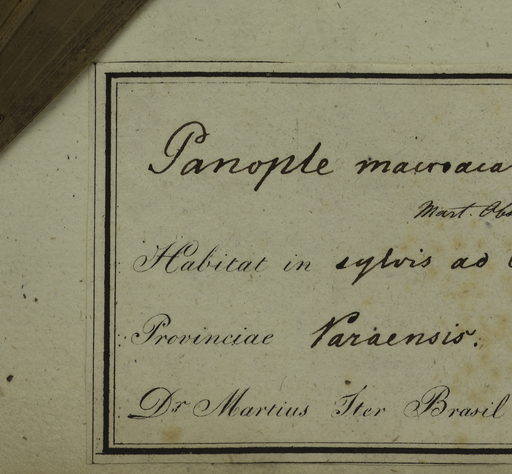 Panople macroaca
Mart. Obs
Habitat in sylvis ad
Provinciae Paraensis.
Dr Martius Iter Brasil